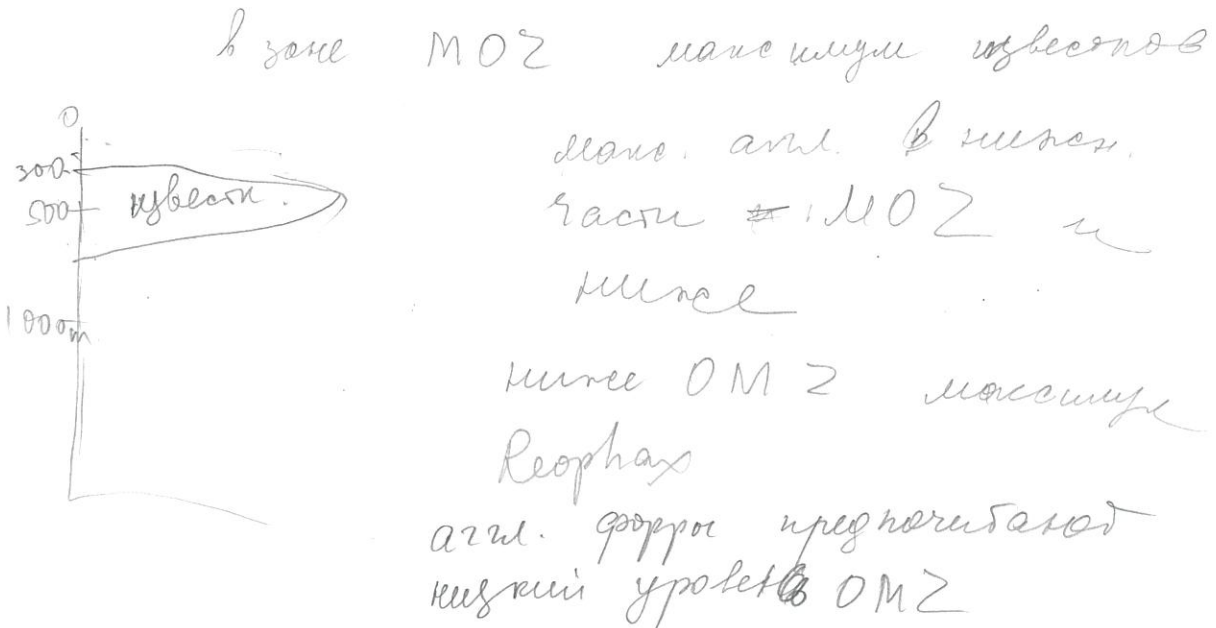 в зоне MOZ максимум известков
0
300
500 известк.
1000m
макс. аггл. в нижн.
части MOZ и
ниже
ниже OMZ максимум
Reophax
аггл. форры предпочитают
низкий уровень OMZ